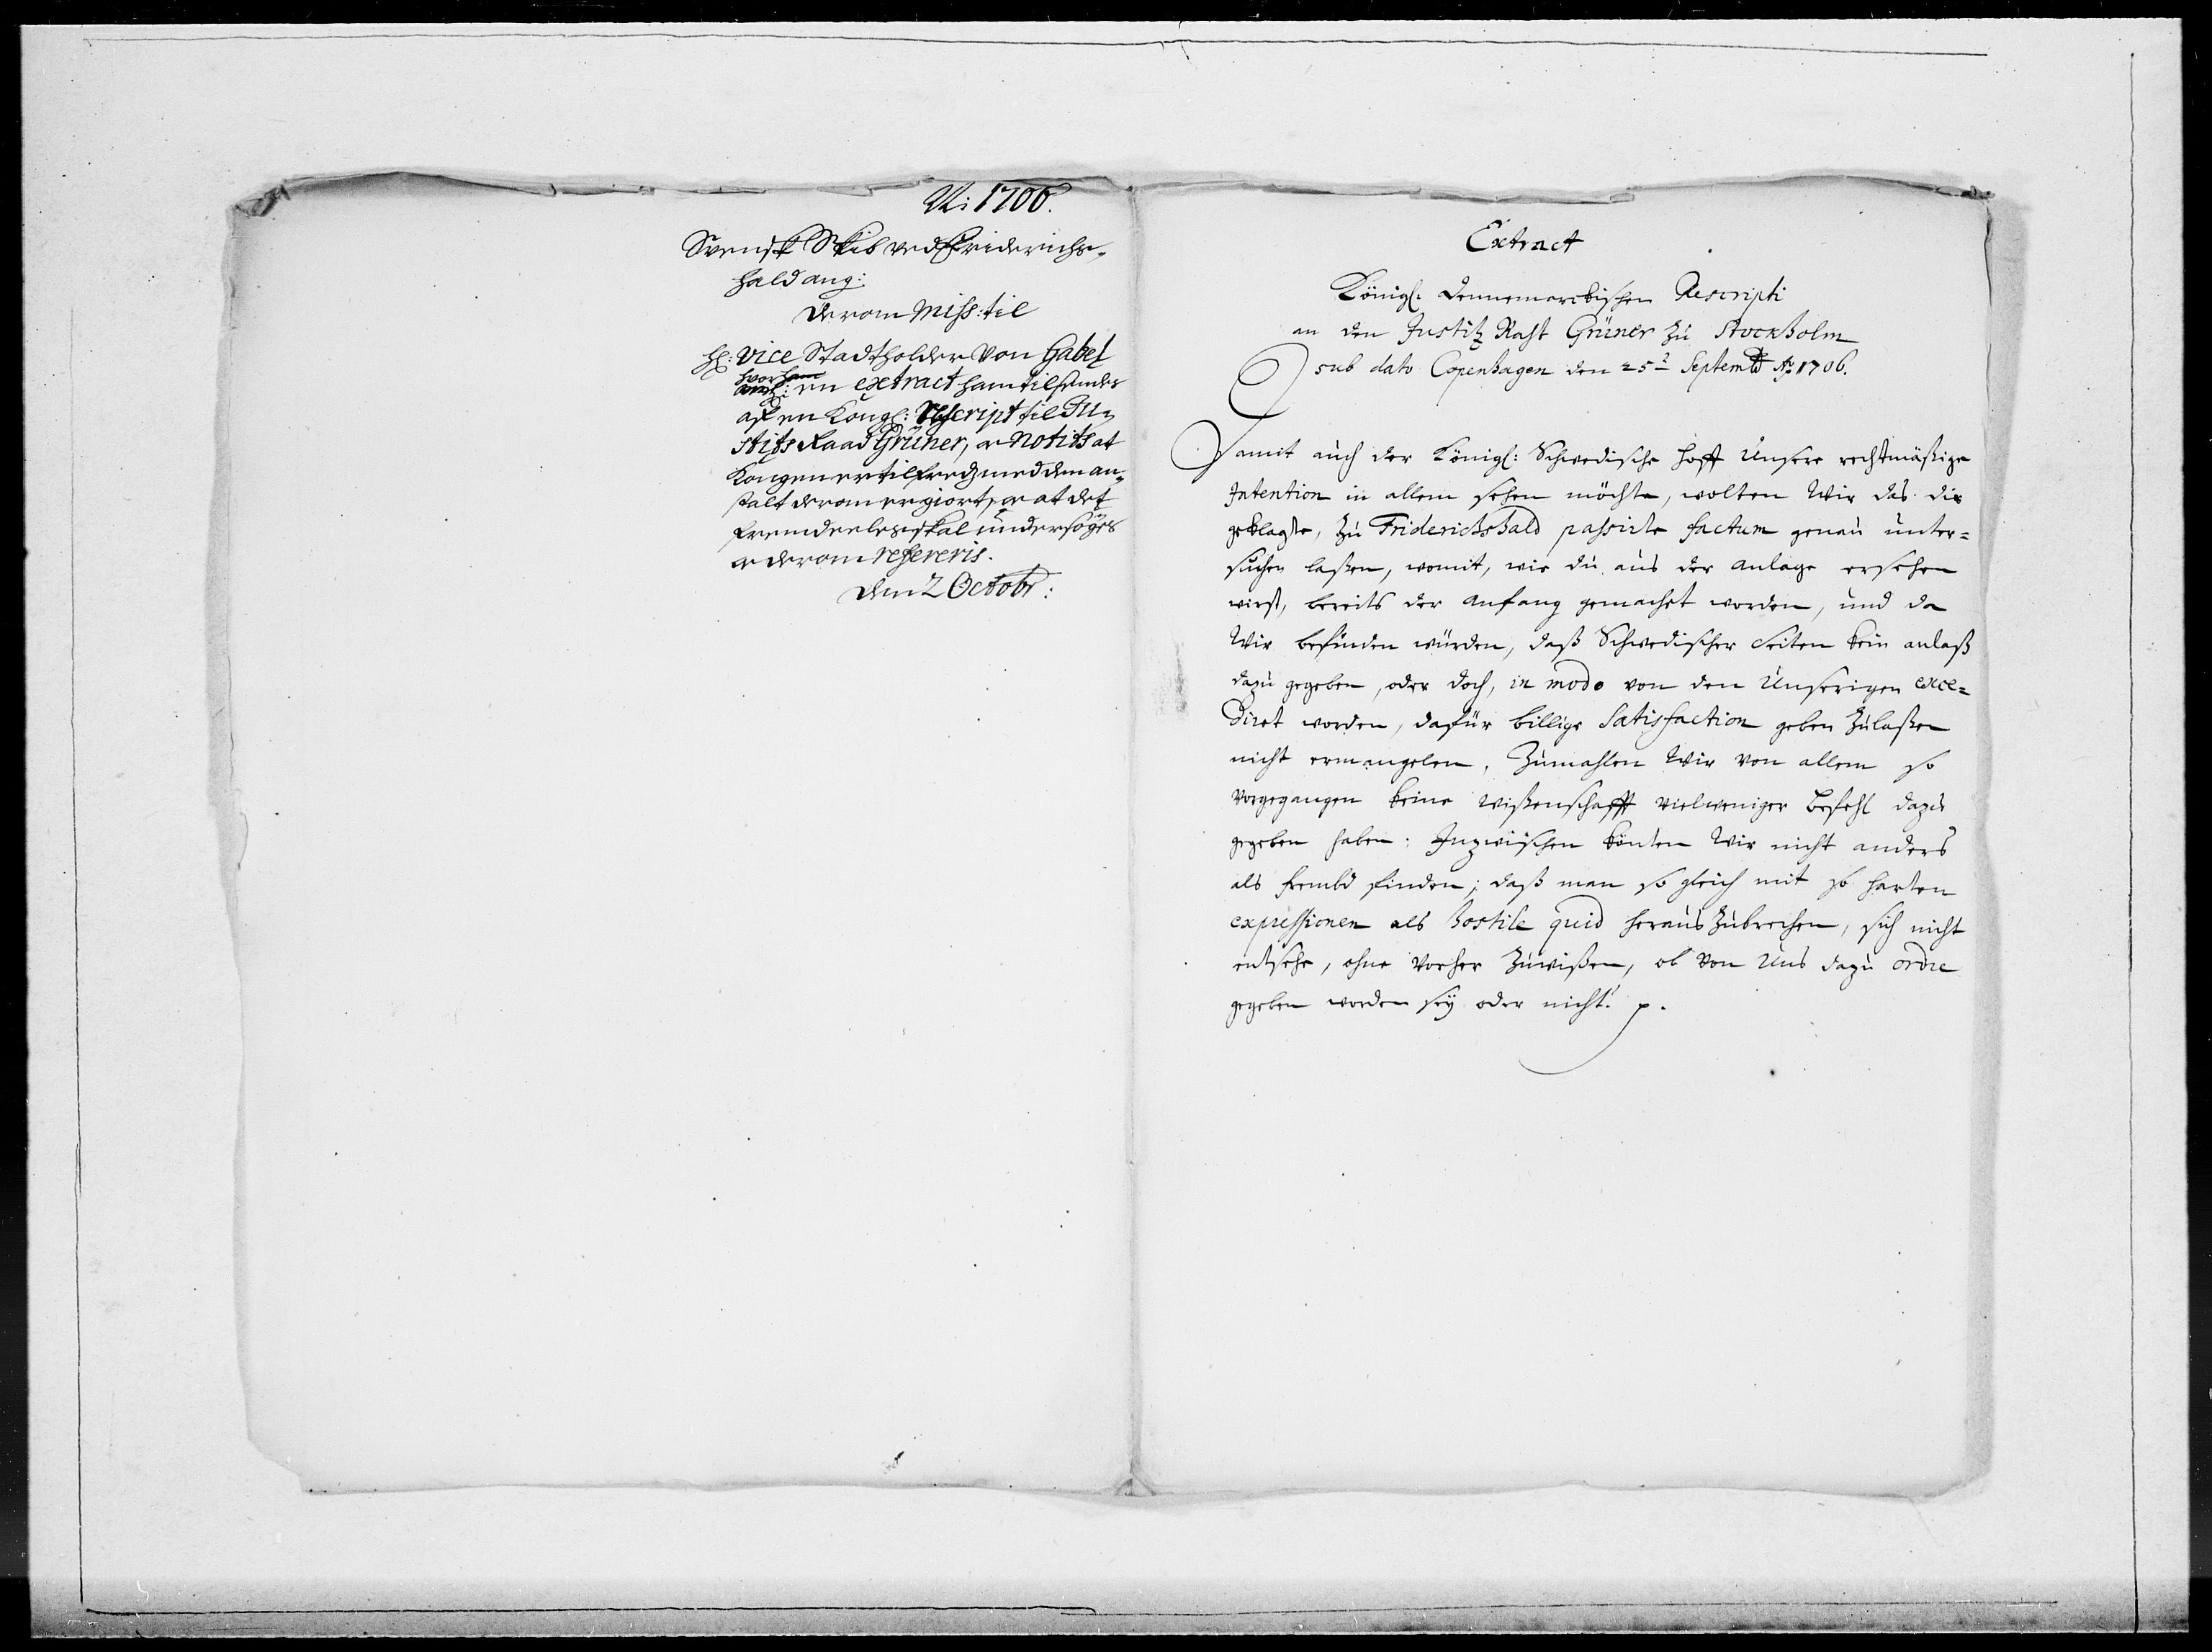 Ni 1706.
Svensk Skib ved Friderichs-
hald ang:
derom Miss: til
H: Vice Stadtholder von Gabel
hvor ham
en extract ham tilsendes
af en Kongl: Rescript til Ju-
stits Raad Grüner, a Notits at
Kongen er til freds med den an-
stalt derom er giort, a at det
fremdeeles skal undersøges
a derom refereris.
den 2 Octobr:
Extract
Königl: Dennemarckischen Rescripti
an den Justitz Raht Grüner zu Stockholm
sub dato Copenhagen den 25ᵗ Septembr Aō 1706.
Damit auch der Königl: Schwedische Hoff Unsere rechtmäßige
Intention in allem sehen möchte, wolten Wir das die
geklagte, zu Friderichshald passirte factum genau unter=
suchen laßen, womit, wie du aus der anlage ersehen
wirst, bereits der anfang gemachet worden, und da
Wir befinden würden, daß Schwedischer Seiten kein anlaß
dazu gegeben, oder doch, in modo von den Unsrigen exce=
diret worden, dafür billige Satisfaction geben zulaßen
nicht ermangelen, Zumahlen Wir von allem so
vorgegangen keine wißenschafft vielweniger Befehl dazu
gegeben haben: Inzwischen könten Wir nicht anders
als frembd finden; daß man so gleich mit so harten
expressionen als hostile quid heraus zubrechen, sich nicht
entsehe, ohne vorher zuwißen, ob von Uns dazu ordre
gegeben worden sey oder nicht. p.